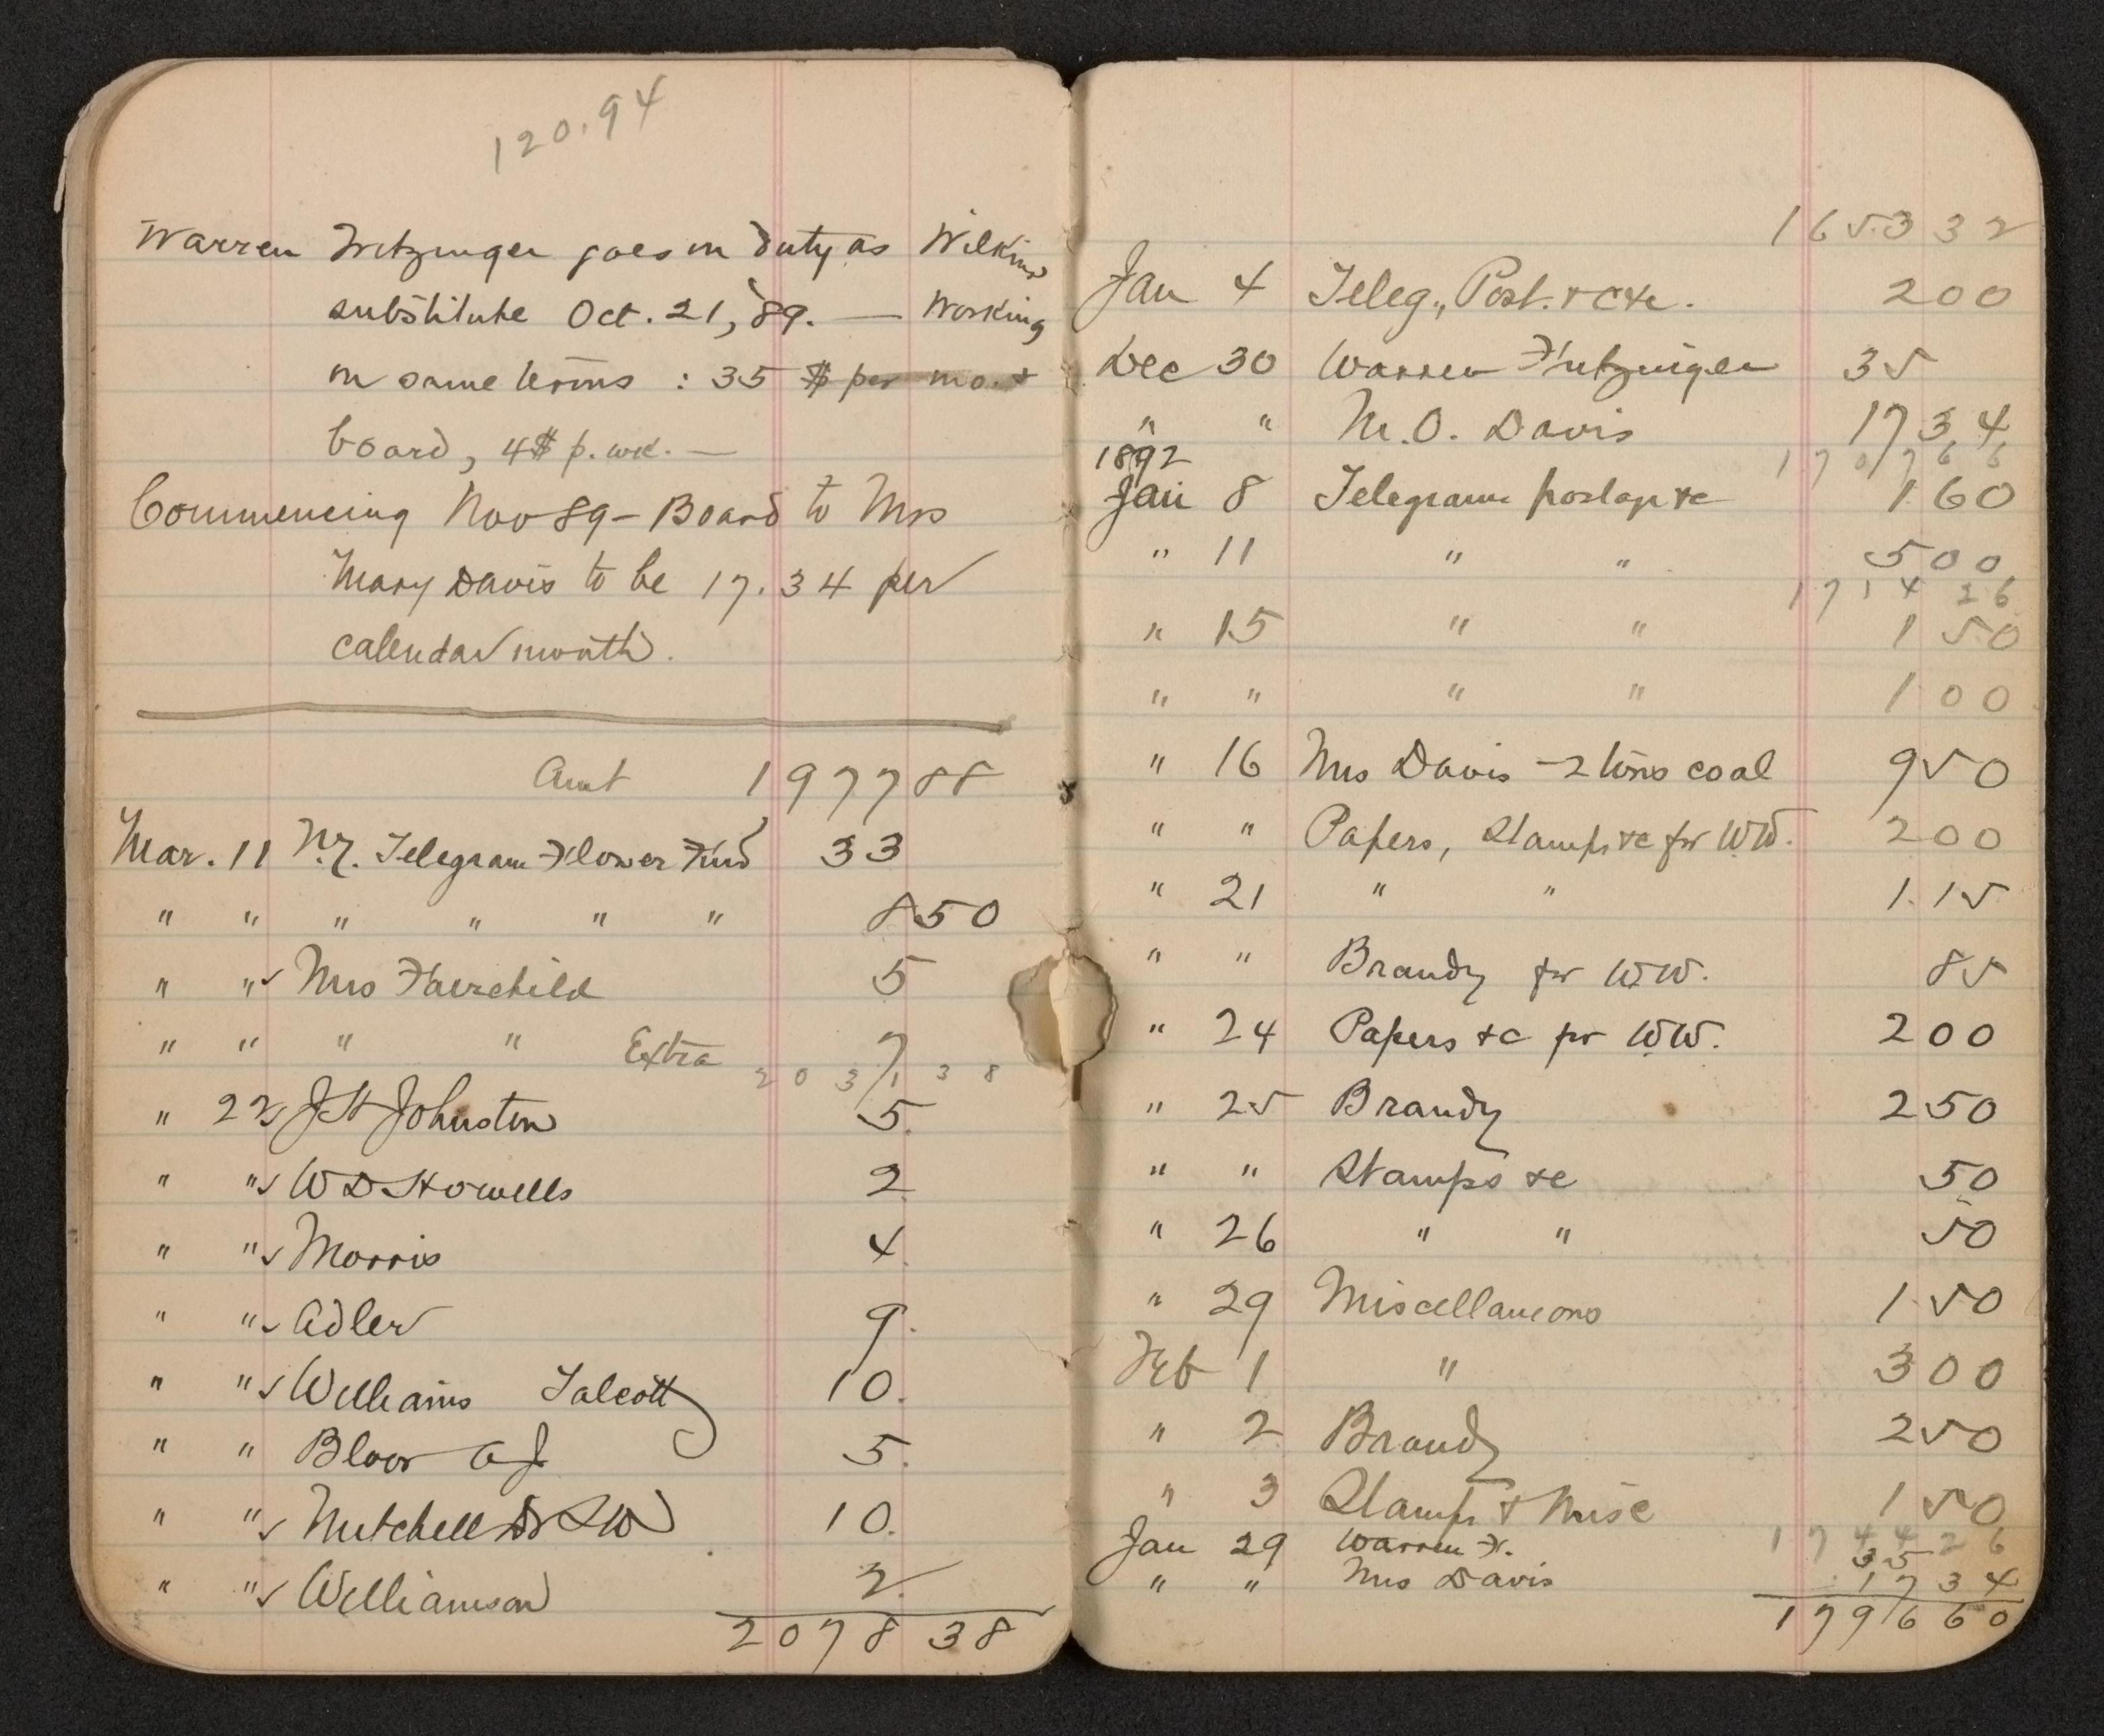 120.94
Warren Fritzinger goes on duty as Wilkins
substitute Oct. 21, '89. — Working
on same terms : 35 $ per mo. +
board, 4$ p. wk. —
Commencing Nov 89 - Board to Mrs
Mary Davis to be 17.34 per
calendar month.
Amt 1977 88
Mar. 11 N.Y. Telegram Flower Fund 33
" " " " " " 8 50
" " Mrs Fairchild 5
" " " " Extra 7
2031 38
" 22 JH Johnston 5.
" " W D Howells 2
" " Morris 4
" " Adler 9.
" " Williams Talcott 10.
" " Bloor A J 5.
" " Mitchell Dr S W 10.
" " Williamson 2.
2078 38
1653 32
Jan 4 Teleg., Post. + &c. 2 00
Dec 30 Warren Fritzinger 35
" " M. O. Davis 17 34
1707 66
1892
Jan 8 Telegrams postage &c 1 60
" 11 " " 5 00
1714 26
" 15 " " 1 50
" " " " 1 00
" 16 Mrs Davis - 2 tons coal 9 50
" " Papers, Stamps &c for WW. 2 00
" 21 " " 1.15
" " Brandy for W.W. 85
" 24 Papers &c for W.W. 2 00
" 25 Brandy 2 50
" " Stamps &c 50
" 26 " " 50
" 29 Miscellaneous 1 50
Feb 1 " 3 00
" 2 Brandy 2 50
" 3 Stamps + Misc 1 50
1744 26
Jan 29 Warren F. 35
" " Mrs Davis 17 34
1796 60